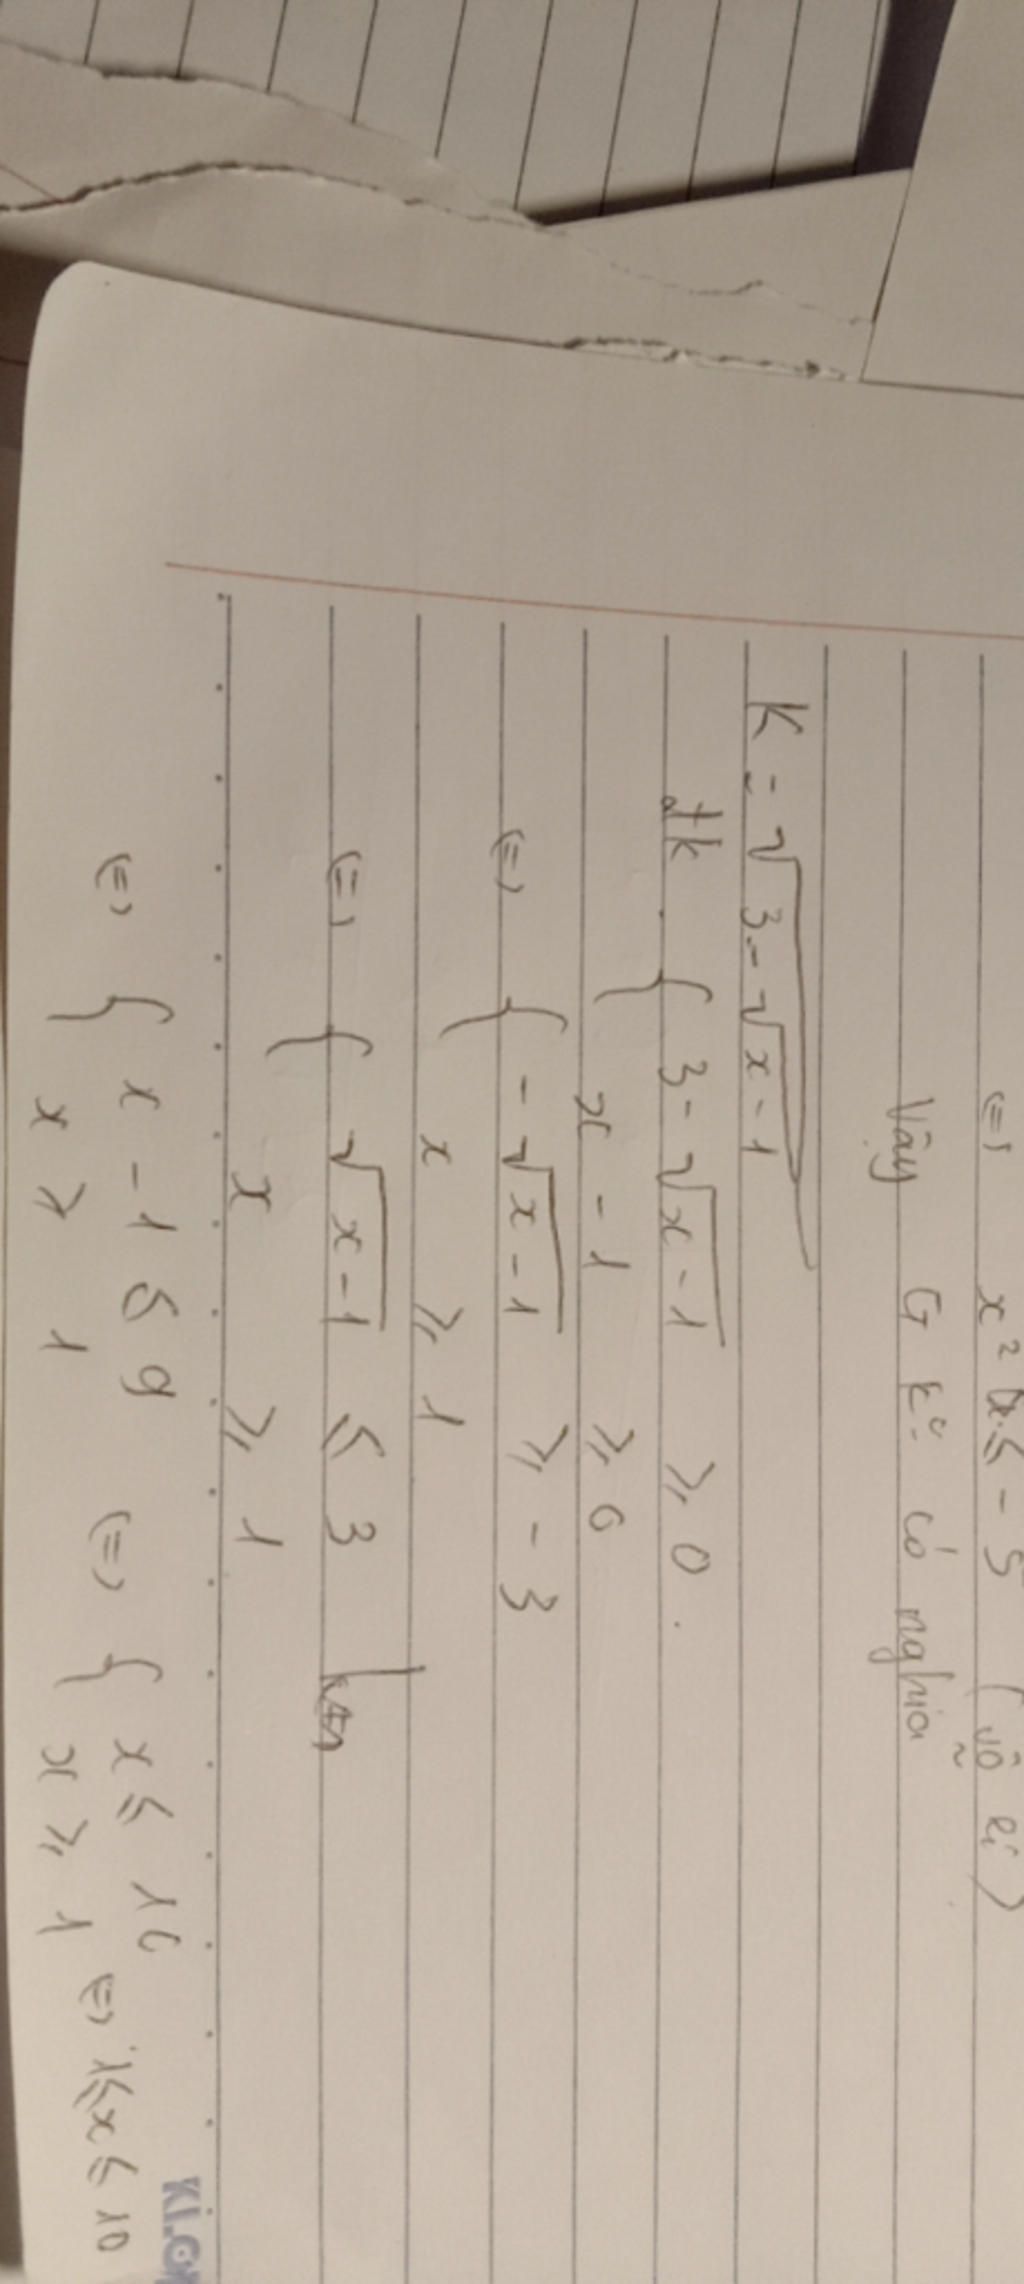 (=) x² ≤ - 5 (vô lí)
Vậy G k° có nghĩa
K = √3 - √x - 1
đk { 3 - √x - 1 ≥ 0
x - 1 ≥ 0
(=) { - √x - 1 ≥ - 3
x ≥ 1
(=) { √x - 1 ≤ 3
x ≥ 1
(=) { x - 1 ≤ 9 (=) { x ≤ 10
x ≥ 1 x ≥ 1 (=) 1 ≤ x ≤ 10